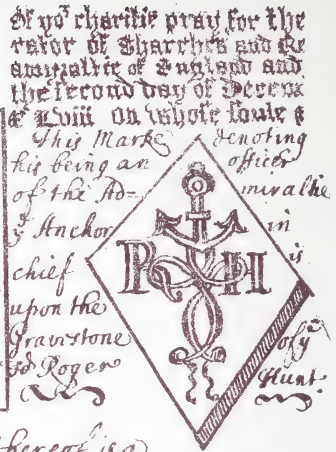 Of yoʳ charitie pray for the
rator of Tharches and the
amiraltie of England and
the second day of Decem
& lviii on whose soule &
this Marke denoting
his being an officer
of the Ad= miraltie
yͤ Anchor in
P H is
chief
upon the
Gravestone of yͤ
sd Roger Hunt.
hereof is a